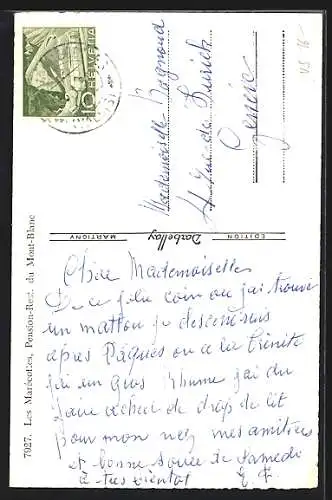 HELVETIA
10
Mademoiselle
4 Rue de Zurich
Genève
VS 16-
EDITION Darbellay MARTIGNY
7927. Les Marécottes, Pension-Rest. du Mont-Blanc
Chère Mademoiselle
De ce coin ou j'ai trouvé
un je
après Pâques ou a la trinité
j'ai un gros Rhume j'ai du
faire de drap de lit
pour mon nez mes amitiés
et bonne de samedi
a tres bientot